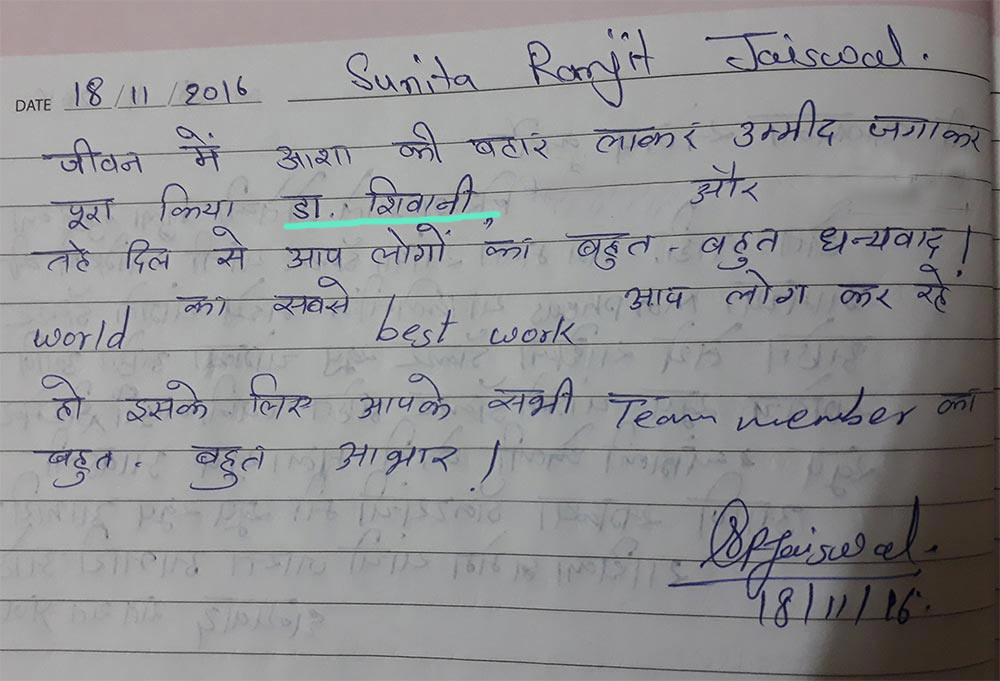 Sunita Ranjit Jaiswal.
DATE 18/11/2016
जीवन में आशा की बहार लाकर उम्मीद जगाकर
पूरा किया डा. शिवानी और
तहे दिल से आप लोगों का बहुत - बहुत धन्यवाद!
world का सबसे best work आप लोग कर रहे
हो इसके लिए आपके सभी Team member का
बहुत - बहुत आभार!
SRJaiswal.
18/11/16.